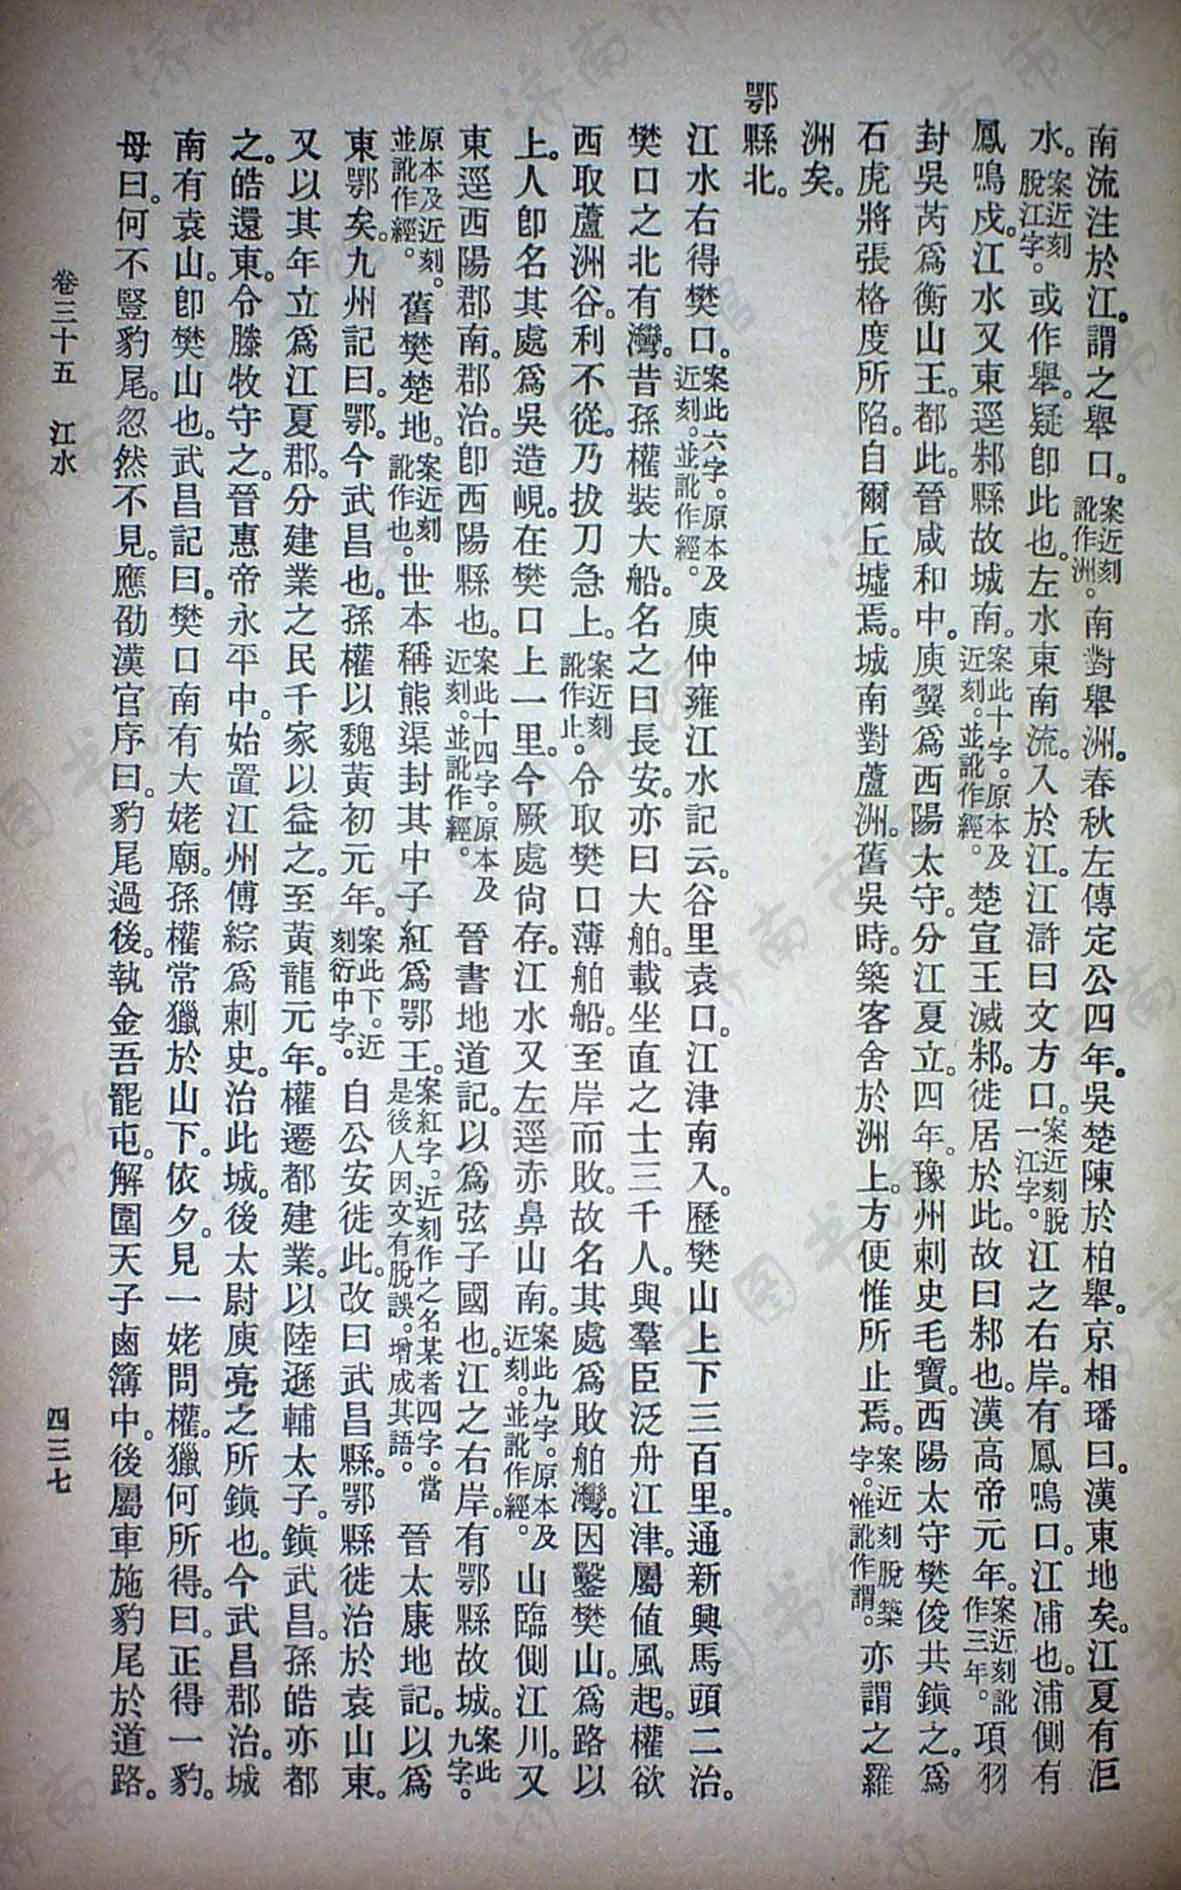 南流注於江。謂之舉口。案近刻訛作洲。南對舉洲。春秋左傳定公四年。吳楚陳於柏舉。京相璠曰。漢東地矣。江夏有洰
水。案近刻脫江字。或作舉。疑卽此也。左水東南流。入於江。江滸曰文方口。案近刻脫一江字。江之右岸。有鳳鳴口。江浦也。浦側有
鳳鳴戍。江水又東逕邾縣故城南。案此十字。原本及近刻。並訛作經。楚宣王滅邾。徙居於此。故曰邾也。漢高帝元年。案近刻訛作三年。項羽
封吳芮爲衡山王。都此。晉咸和中。庾翼爲西陽太守。分江夏立。四年。豫州刺史毛寶。西陽太守樊俊共鎮之。爲
石虎將張格度所陷。自爾丘墟焉。城南對蘆洲。舊吳時。築客舍於洲上。方便惟所止焉。案近刻脫築字。惟訛作謂。亦謂之羅
洲矣。
鄂縣北。
江水右得樊口。案此六字。原本及近刻。並訛作經。庾仲雍江水記云。谷里袁口。江津南入。歷樊山上下三百里。通新興馬頭二治。
樊口之北有灣。昔孫權裝大船。名之曰長安。亦曰大舶。載坐直之士三千人。與羣臣泛舟江津。屬値風起。權欲
西取蘆洲谷。利不從。乃拔刀急上。案近刻訛作止。令取樊口薄舶船。至岸而敗。故名其處爲敗舶灣。因鑿樊山。爲路以
上。人卽名其處爲吳造峴。在樊口上一里。今厥處尙存。江水又左逕赤鼻山南。案此九字。原本及近刻。並訛作經。山臨側江川。又
東逕西陽郡南。郡治。卽西陽縣也。案此十四字。原本及近刻。並訛作經。晉書地道記。以爲弦子國也。江之右岸。有鄂縣故城。案此九字。
原本及近刻。並訛作經。舊樊楚地。案近刻訛作也。世本稱熊渠封其中子紅爲鄂王。案紅字。近刻作之名某者四字。當是後人因文有脫誤。增成其語。晉太康地記。以爲
東鄂矣。九州記曰。鄂。今武昌也。孫權以魏黃初元年。案此下。近刻衍中字。自公安徙此。改曰武昌縣。鄂縣徙治於袁山東。
又以其年立爲江夏郡。分建業之民千家以益之。至黃龍元年。權遷都建業。以陸遜輔太子。鎮武昌。孫皓亦都
之。皓還東。令滕牧守之。晉惠帝永平中。始置江州傅綜爲刺史。治此城。後太尉庾亮之所鎮也。今武昌郡治。城
南有袁山。卽樊山也。武昌記曰。樊口南有大姥廟。孫權常獵於山下。依夕。見一姥問權。獵何所得。曰。正得一豹。
母曰。何不豎豹尾。忽然不見。應劭漢官序曰。豹尾過後。執金吾罷屯。解圍天子鹵簿中。後屬車施豹尾於道路。
卷三十五 江水 四三七